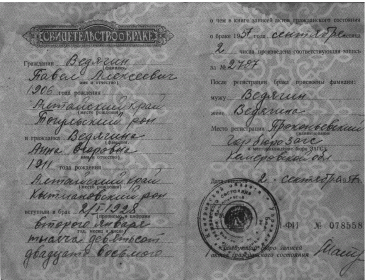 СВИДЕТЕЛЬСТВО О БРАКЕ
Гражданин Водягин
Павел Алексеевич
1906 года рождения
Алтайский край
Тогульский рон
и гражданка Водягина
Анна
1911 года рождения
Алтайский край
Кытмановский рон
вступили в брак 2/I-1928
второго января
тысяча девятсот
двадцать восьмого
о чем в книге записей актов гражданского состояния
о браке 19 сентября
2 числа произведена соответствующая запись
за № 2787
После регистрации брака присвоены фамилии:
мужу Водягин
жене Водягина
Место регистрации Прокопьевский
Гор бюро Загс
Кемеровской обл
2 сентября
№ 078558
Заведующий бюро записей
актов гражданского состояния